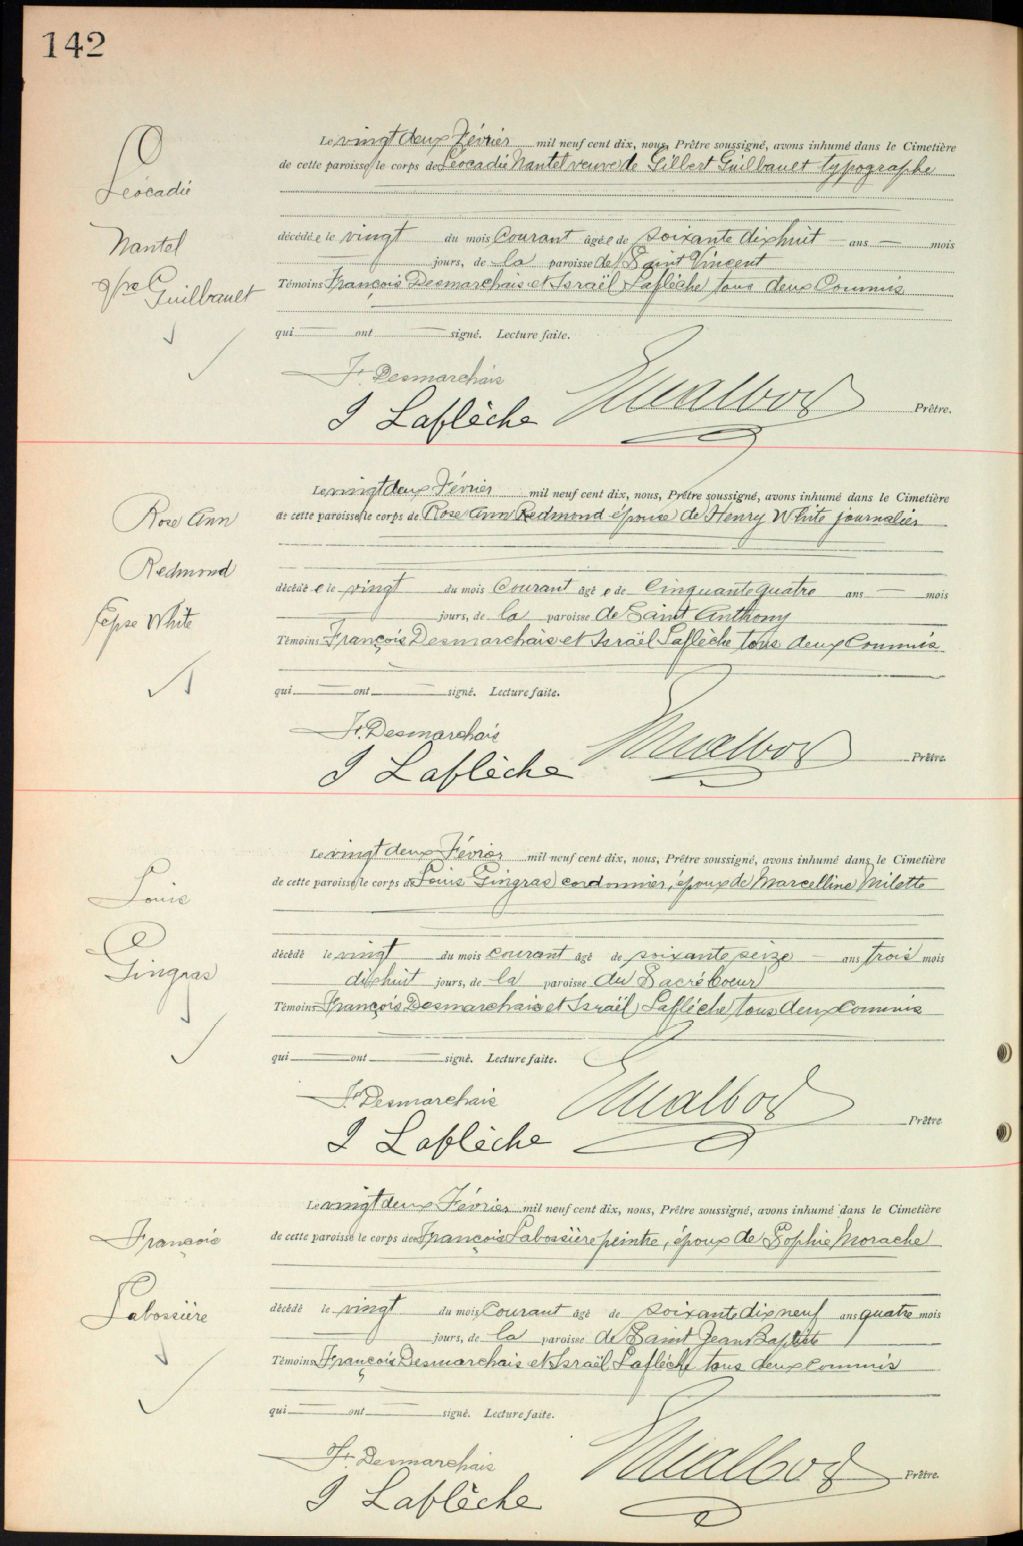 142
Léocadie
Nantel
Vve Guilbault
Le vingt deux Février mil neuf cent dix, nous, Prêtre soussigné, avons inhumé dans le Cimetière
de cette paroisse le corps de Léocadie Nantel veuve de Gilbert Guilbault typographe
décédée le vingt du mois Courant âgée de soixante dix huit — ans — mois
— jours, de la paroisse de Saint Vincent
Témoins François Desmarchais et Israël Laflèche tous deux Commis
qui — ont — signé. Lecture faite.
F. Desmarchais
I Laflèche
Prêtre.
Rose Ann
Redmond
Epse White
Le vingt deux Février mil neuf cent dix, nous, Prêtre soussigné, avons inhumé dans le Cimetière
de cette paroisse le corps de Rose Ann Redmond épouse de Henry White journalier
décédée le vingt du mois Courant âgée de Cinquante quatre ans — mois
— jours, de la paroisse de Saint Anthony
Témoins François Desmarchais et Israël Laflèche tous deux Commis
qui — ont — signé. Lecture faite.
F. Desmarchais
I Laflèche
Prêtre.
Louis
Gingras
Le vingt deux Février mil neuf cent dix, nous, Prêtre soussigné, avons inhumé dans le Cimetière
de cette paroisse le corps de Louis Gingras cordonnier, époux de Marcelline Milette
décédé le vingt du mois courant âgé de soixante seize — ans trois mois
dix huit jours, de la paroisse du Sacré Coeur
Témoins François Desmarchais et Israël Laflèche tous deux Commis
qui — ont — signé. Lecture faite.
F. Desmarchais
I Laflèche
Prêtre.
François
Labossière
Le vingt deux Février mil neuf cent dix, nous, Prêtre soussigné, avons inhumé dans le Cimetière
de cette paroisse le corps de François Labossière peintre, époux de Sophie Morache
décédé le vingt du mois Courant âgé de soixante dix neuf ans quatre mois
— jours, de la paroisse de Saint Jean Baptiste
Témoins François Desmarchais et Israël Laflèche tous deux Commis
qui — ont — signé. Lecture faite.
F. Desmarchais
I Laflèche
Prêtre.